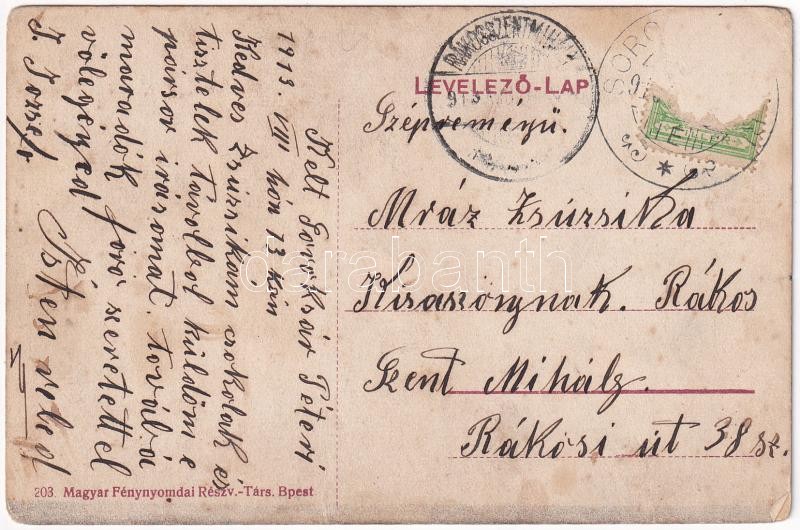 LEVELEZŐ-LAP
RÁKOSSZENTMIHÁLY
913
SORO
Szépreményü.
Mráz Zsúzsika
Kisaszonynak. Rákos
Szent Mihály.
Rákosi út 38 sz.
Kelt Soroksár Péteri
1913. VIII hón 13 kán
Kedves Zsúzsikám csokolak és
tisztelek távolbol küldöm e
pársor irásomat. továbá
maradók forró szeretettel
völegényed
J. József
Isten veled
203. Magyar Fénynyomdai Részv.-Társ. Bpest
darabanth